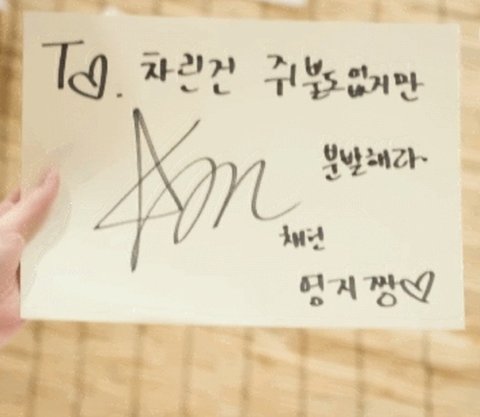 To. 차린건 쥐뿔도없지만
분발해라
채현
엉지짱♡